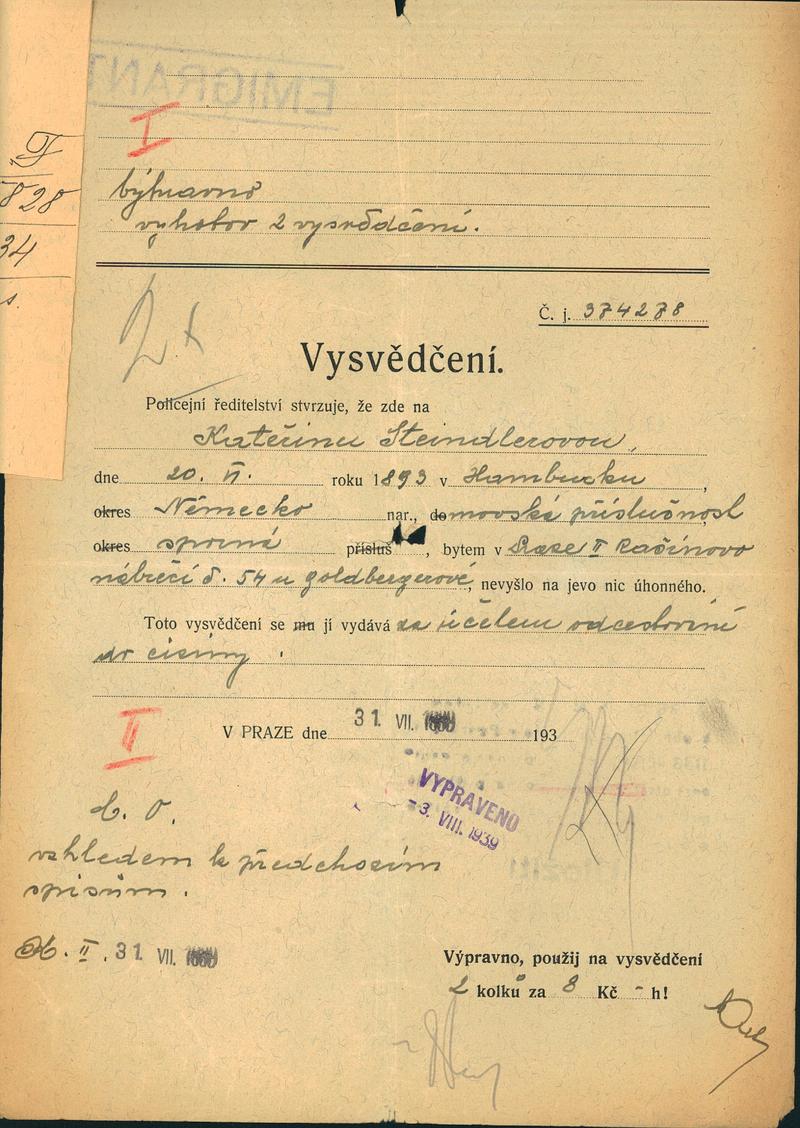 EMIGRANT
I
F
828
34
s.
Výpravno
vyhotov 2 vysvědčení.
Č. j. 374278
Vysvědčení.
Policejní ředitelství stvrzuje, že zde na
Kateřinu Steindlerovou,
dne 20. VI. roku 1893 v Hamburku,
okres Německo nar., domovská příslušnost
okres sporná přísluš , bytem v Praze II Rašínovo
nábřeží č. 54 u Goldbergerové, nevyšlo na jevo nic úhonného.
Toto vysvědčení se mu jí vydává za účelem odcestování
do ciziny.
II
V PRAZE dne 31. VII. 193
VYPRAVENO
-3. VIII. 1939
vzhledem k předchozím
spisům.
II. 31 VII.
Výpravno, použij na vysvědčení
2 kolků za 8 Kč - h!